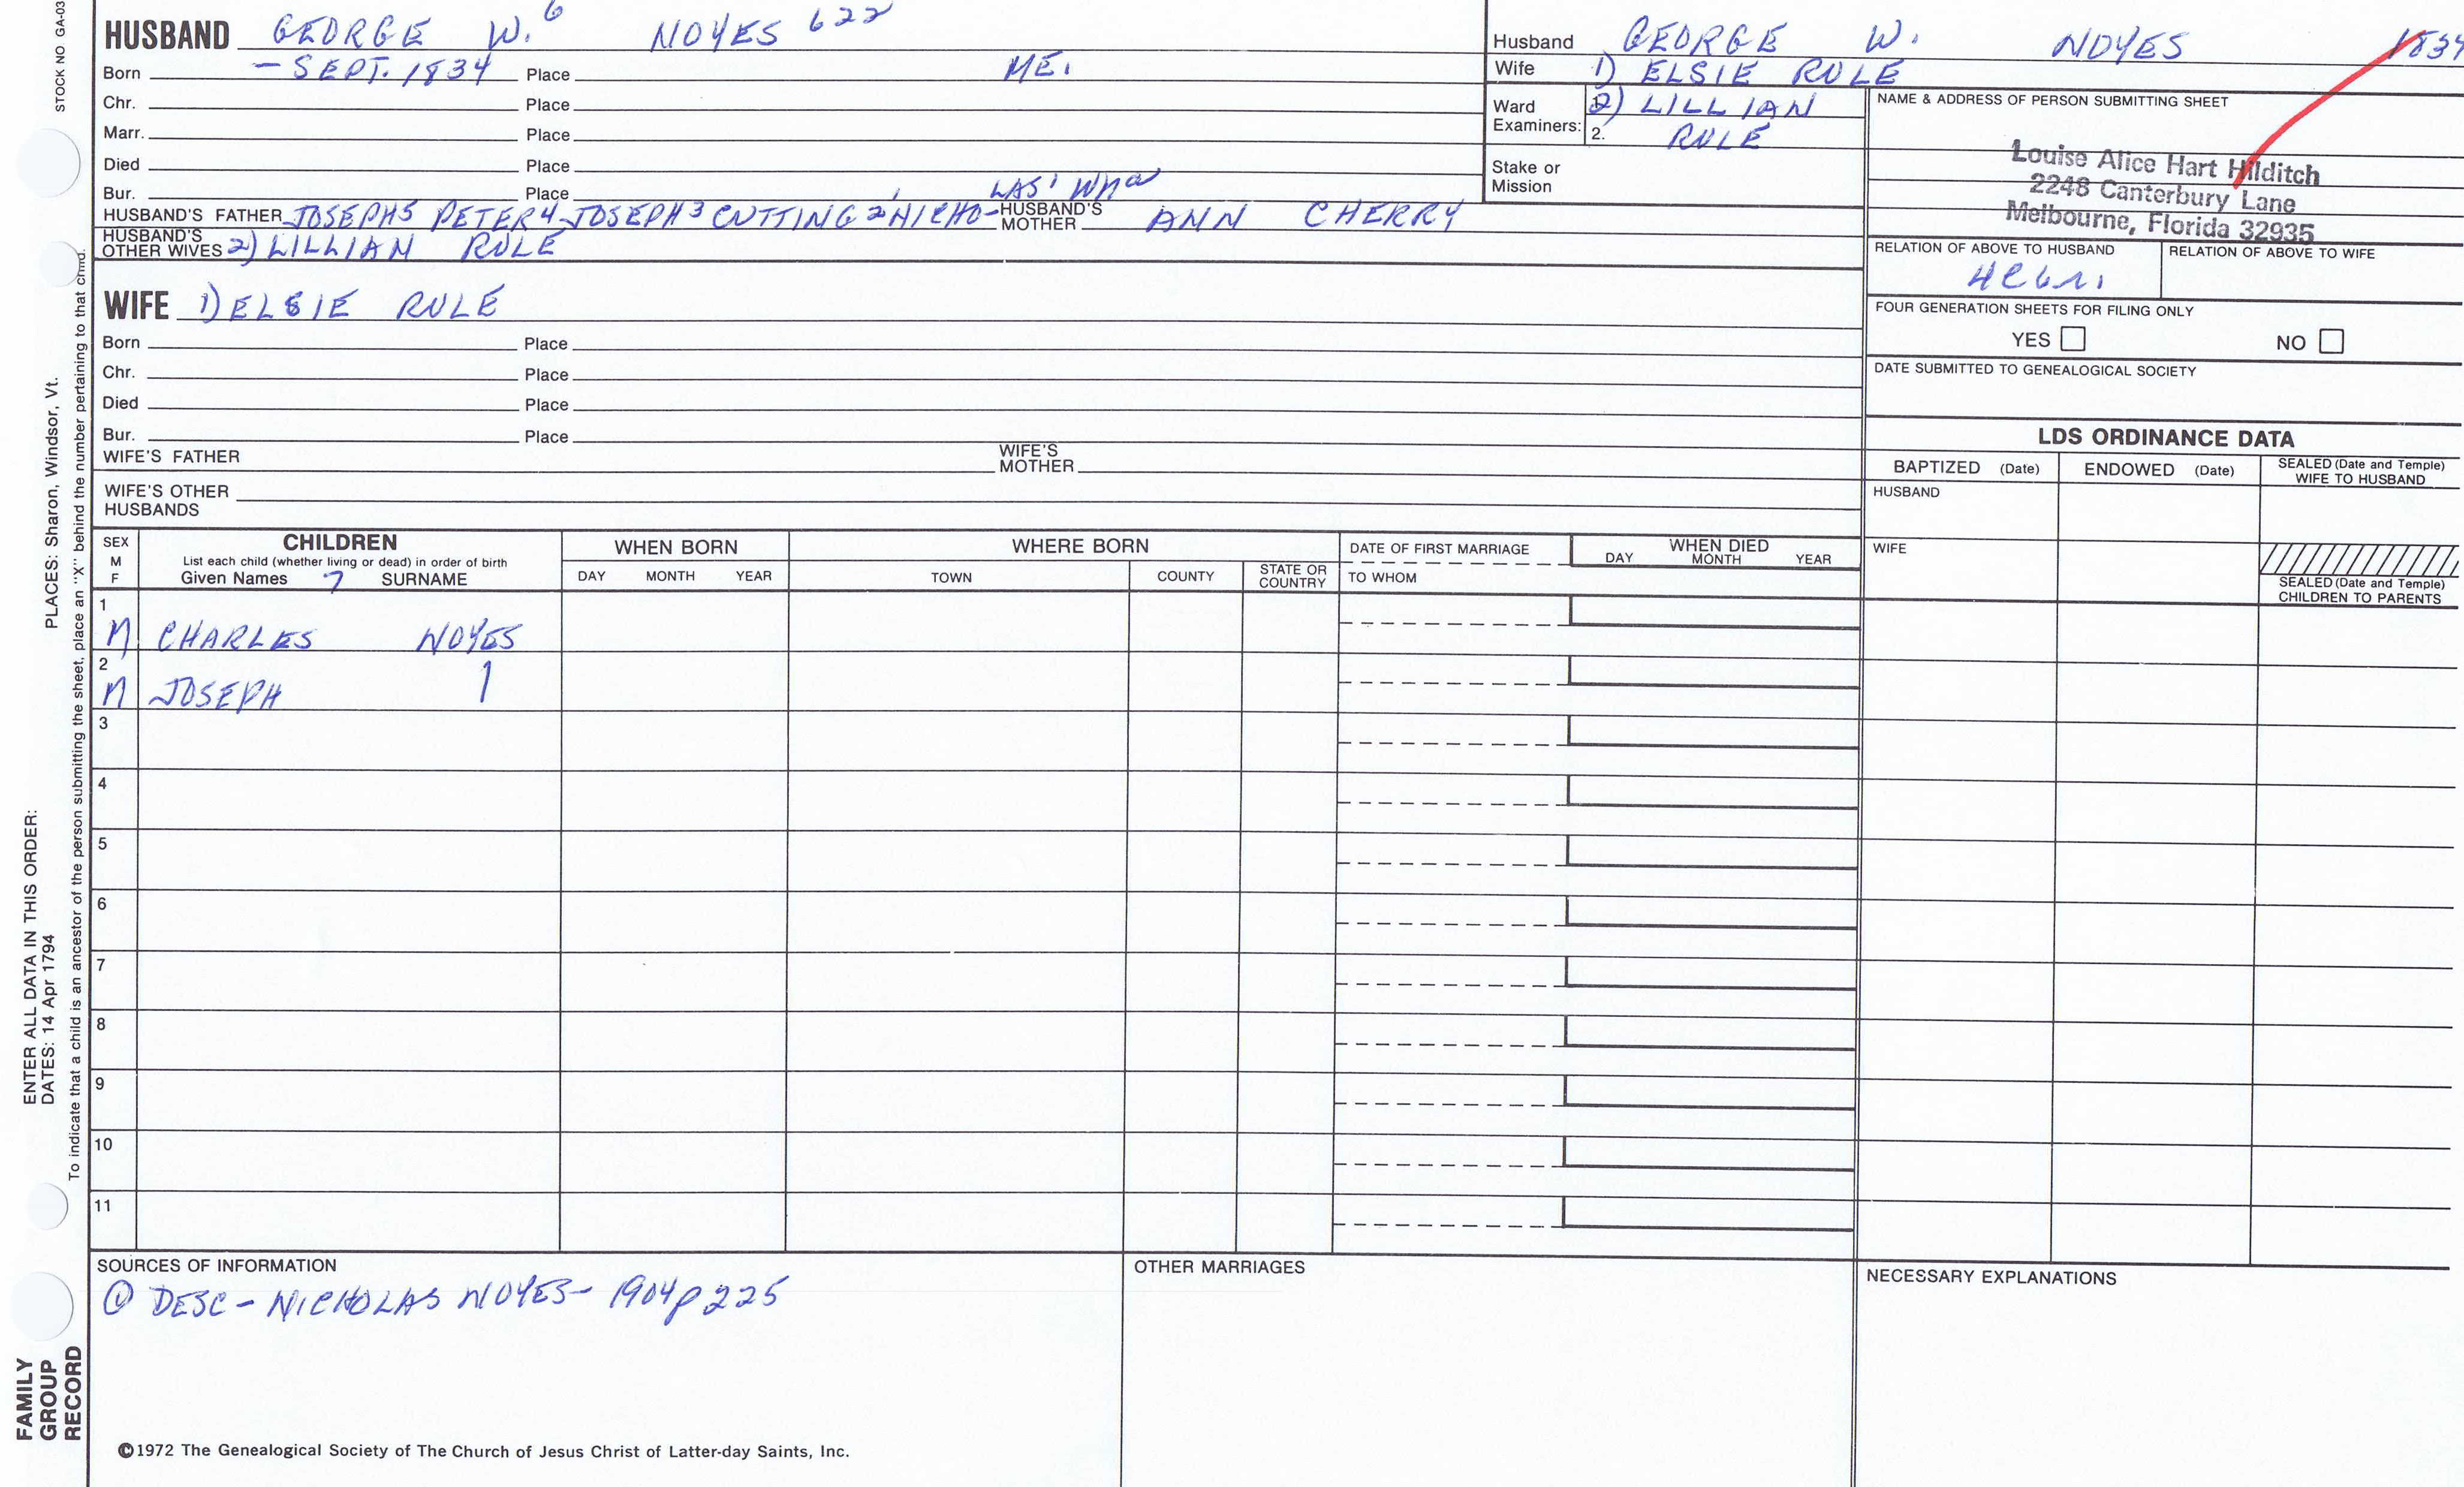 STOCK NO GA-03
HUSBAND GEORGE W. 6 NOYES 622
Born - SEPT. 1834 Place ME.
Chr. Place
Marr. Place
Died Place
Bur. Place
HUSBAND'S FATHER JOSEPH5 PETER4 JOSEPH3 CUTTING2 NICHO-LAS' Wm a HUSBAND'S MOTHER ANN CHERRY
HUSBAND'S OTHER WIVES 2) LILLIAN RULE
WIFE 1) ELSIE RULE
Born Place
Chr. Place
Died Place
Bur. Place
WIFE'S FATHER WIFE'S MOTHER
WIFE'S OTHER HUSBANDS
Husband GEORGE W. NOYES 1834
Wife 1) ELSIE RULE
Ward Examiners: 2) LILLIAN
2. RULE
Stake or Mission
NAME & ADDRESS OF PERSON SUBMITTING SHEET
Louise Alice Hart Hilditch
2248 Canterbury Lane
Melbourne, Florida 32935
RELATION OF ABOVE TO HUSBAND RELATION OF ABOVE TO WIFE
FOUR GENERATION SHEETS FOR FILING ONLY
YES NO
DATE SUBMITTED TO GENEALOGICAL SOCIETY
LDS ORDINANCE DATA
BAPTIZED (Date) ENDOWED (Date) SEALED (Date and Temple) WIFE TO HUSBAND
HUSBAND
WIFE
SEALED (Date and Temple) CHILDREN TO PARENTS
SEX M F
CHILDREN
List each child (whether living or dead) in order of birth
Given Names 7 SURNAME
WHEN BORN
DAY MONTH YEAR
WHERE BORN
TOWN COUNTY STATE OR COUNTRY
DATE OF FIRST MARRIAGE
TO WHOM
WHEN DIED
DAY MONTH YEAR
1
M CHARLES NOYES
2
M JOSEPH
3
4
5
6
7
8
9
10
11
SOURCES OF INFORMATION
① DESC - NICHOLAS NOYES - 1904 p 225
OTHER MARRIAGES
NECESSARY EXPLANATIONS
©1972 The Genealogical Society of The Church of Jesus Christ of Latter-day Saints, Inc.
ENTER ALL DATA IN THIS ORDER:
DATES: 14 Apr 1794
PLACES: Sharon, Windsor, Vt.
To indicate that a child is an ancestor of the person submitting the sheet, place an "X" behind the number pertaining to that child.
FAMILY
GROUP
RECORD